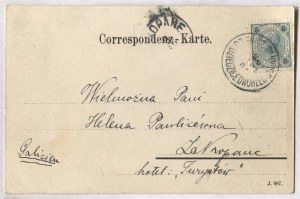 OPANE
Correspondenz-Karte.
Wielmożna Pani
Helena Pawlicówna
Galizien
Zakopane
hotel: „Turystów"